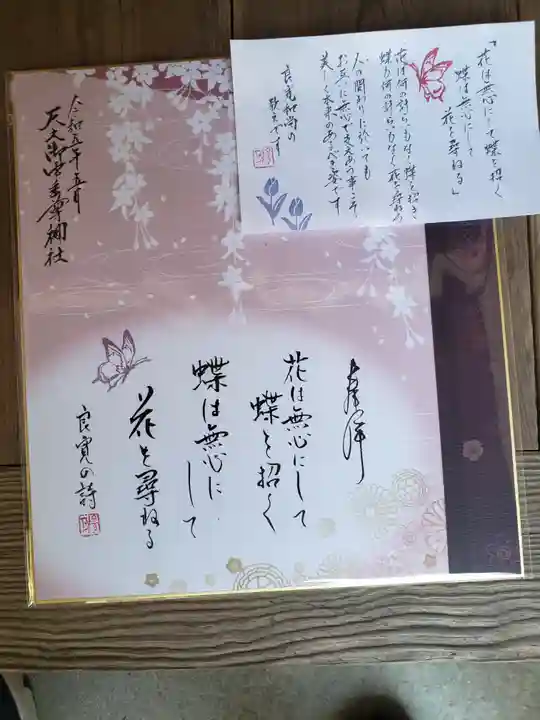 「花は無心にして蝶を招く
蝶は無心にして
花を尋ねる」
花は何の計らいもなく蝶を招き
蝶も何の計らいもなく花を尋ねる
人の関わりに於いても
お互いに無心で
美しく本来のあるべき姿です
良寛和尚の
奉拝
花は無心にして
蝶を招く
蝶は無心に
して
花を尋ねる
良寛の詩
令和五年五月
天之御中主尊禰社